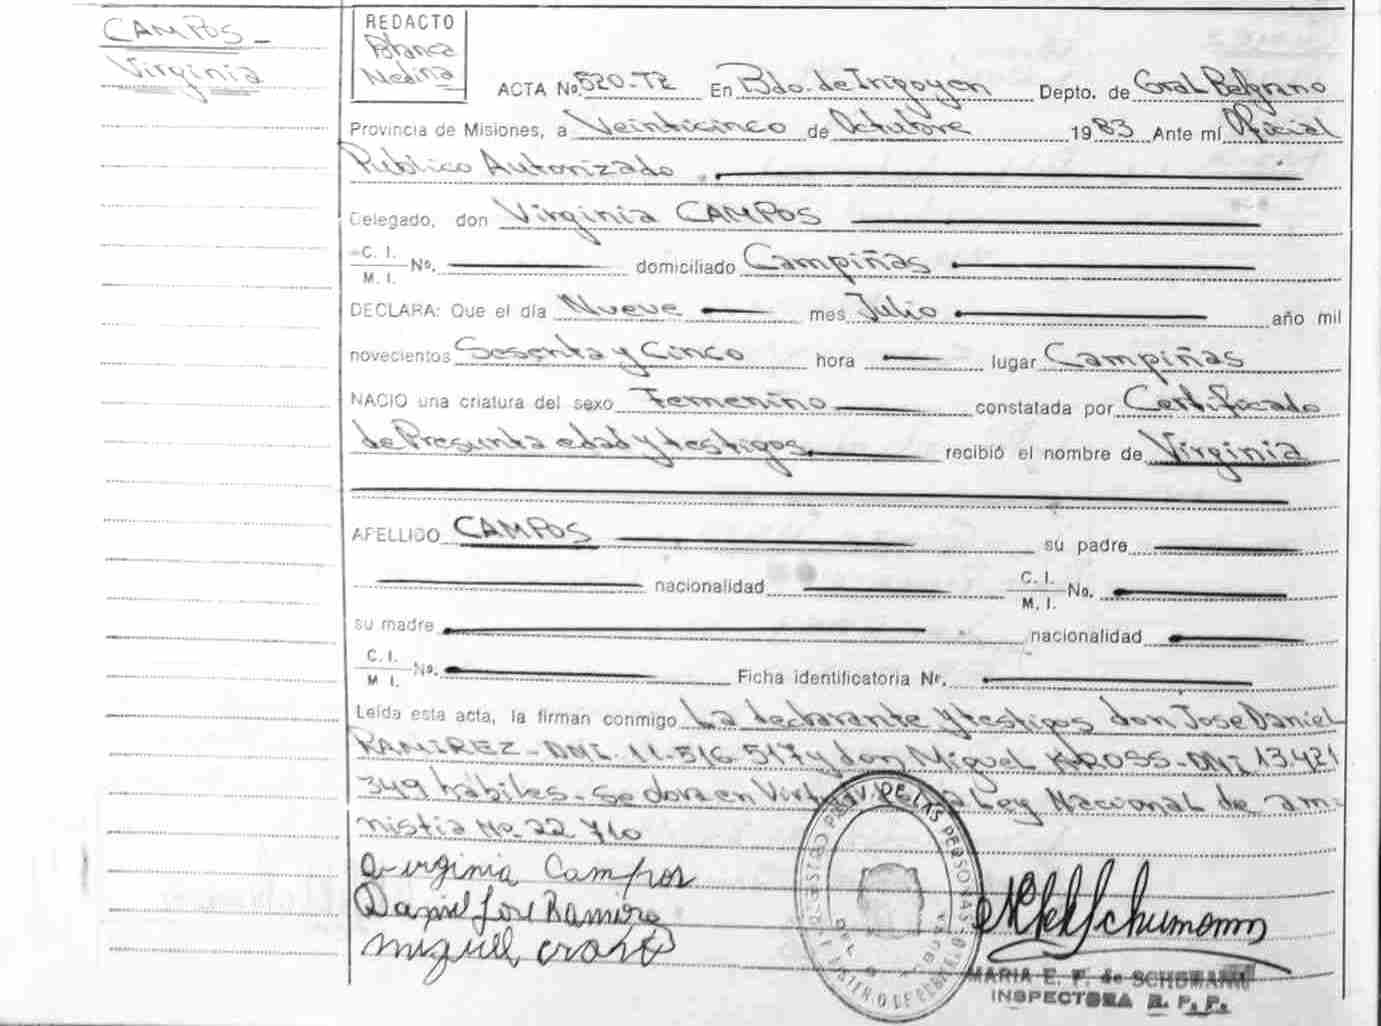 CAMPOS
Virginia
REDACTO
Blanca
Medina
ACTA No. 520-TE En Bdo. de Irigoyen Depto. de Gral Belgrano
Provincia de Misiones, a Veinticinco de Octubre 1983 Ante mí Oficial
Publico Autorizado
Delegado, don Virginia CAMPOS
C. I.
M. I. No. domiciliado Campiñas
DECLARA: Que el día Nueve mes Julio año mil
novecientos Sesenta y Cinco hora lugar Campiñas
NACIO una criatura del sexo Femenino constatada por Certificado
de Presunta edad y testigos recibió el nombre de Virginia
APELLIDO CAMPOS su padre
nacionalidad C. I.
M. I. No.
su madre nacionalidad
C. I.
M I. No. Ficha identificatoria Nr.
Leída esta acta, la firman conmigo La declarante y testigos don Jose Daniel
RAMIREZ - DNI. 11-516-517 y don Miguel KROSS - DNI 13.421
349 hábiles - Se in Ley Nacional de am-
nistia No. 22 710
Virginia Campos
Daniel José Ramirez
miguel cross
PROV DE LAS PERSONAS
Schumann
MARIA E. F. de SCHUMANN
INSPECTORA R. P. P.